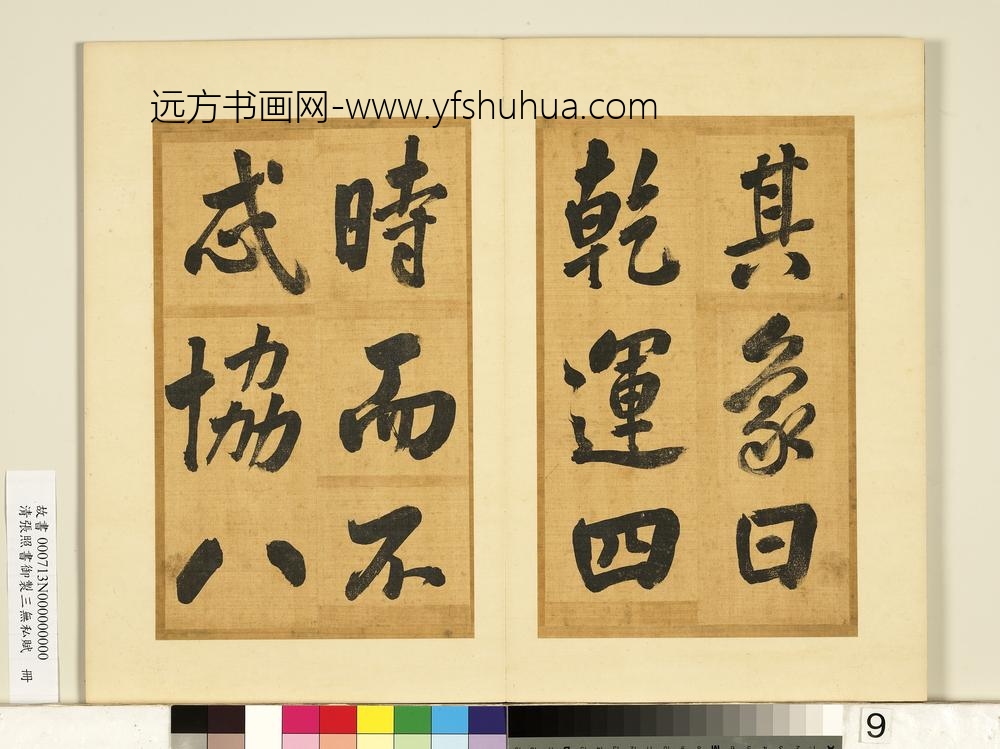 远方书画网-www.yfshuhua.com
其象曰
乾運四
時而不
忒協八
故書 000713N000000000
清張照書御製三無私賦 冊
9